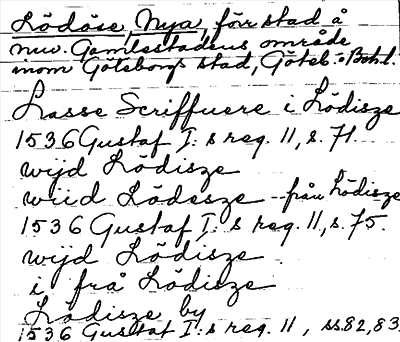 Lödöse, Nya, förr stad å
nuv. Gamlestadens område
inom Göteborgs stad, Göteb. o Bohl.
Lasse Scriffuere i Lödisze
1536 Gustaf I:s reg. 11, s. 71.
wijd Lödisze
wiid Lödesze - från Lödisze
1536 Gustaf I:s reg. 11, s. 75.
wijd Lödisze
i frå Lödisze
Lödisze by
1536 Gustaf I:s reg. 11, ss. 82, 83